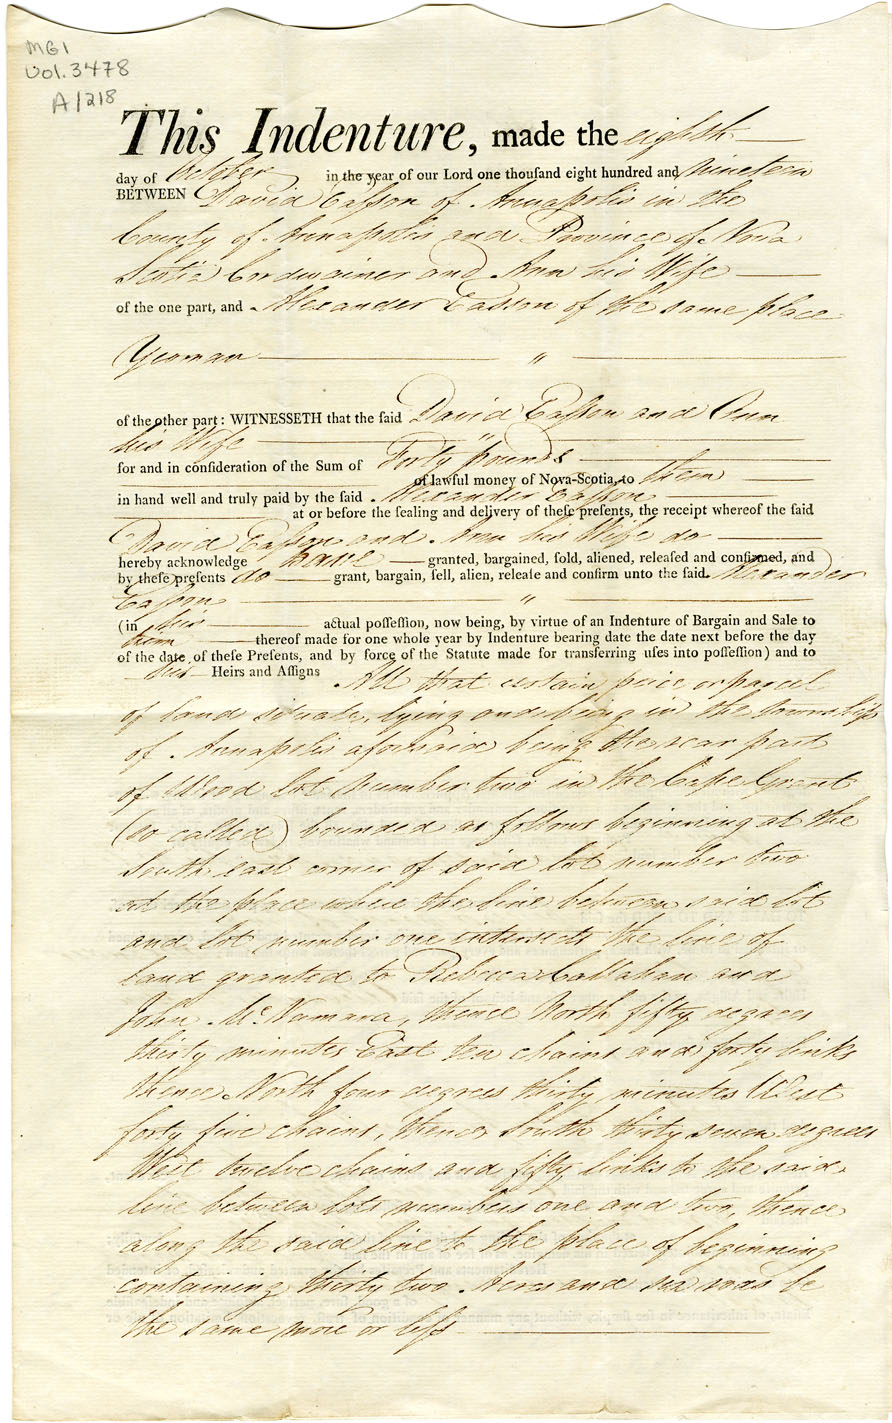 MG1
Vol. 3478
A/218
This Indenture, made the eighth
day of October in the year of our Lord one thouſand eight hundred and nineteen
BETWEEN David Eaſson of Annapolis in the
County of Annapolis and Province of Nova
Scotia Cordwainer and Ann his Wife
of the one part, and Alexander Easson of the same place
Yeoman "
of the other part: WITNESSETH that the ſaid David Eaſson and Ann
his Wife "
for and in conſideration of the Sum of Forty pounds
of lawful money of Nova-Scotia, to them
in hand well and truly paid by the ſaid Alexander Eaſson
at or before the ſealing and delivery of theſe preſents, the receipt whereof the ſaid
David Eaſson and Ann his Wife do
hereby acknowledge have granted, bargained, ſold, aliened, releaſed and confirmed, and
by theſe preſents do grant, bargain, ſell, alien, releaſe and confirm unto the ſaid Alexander
Eaſson "
(in his actual poſſeſſion, now being, by virtue of an Indenture of Bargain and Sale to
him thereof made for one whole year by Indenture bearing date the date next before the day
of the date of theſe Preſents, and by force of the Statute made for transferring uſes into poſſeſſion) and to
his Heirs and Aſſigns All that certain peice or parcel
of land situate, lying and being in the township
of Annapolis aforesaid being the rear part
of Wood lot number two in the Cape Grant
(so called) bounded as follows beginning at the
South east corner of said lot number two
at the place where the line between said lot
and lot number one intersects the line of
land granted to Rebecca Callahan and
John McNamara, thence North fifty degrees
thirty minutes East ten chains and forty links
thence North four degrees thirty minutes West
forty five chains, thence South thirty seven degrees
West twelve chains and fifty links to the said
line between lots numbers one and two, thence
along the said line to the place of beginning
containing thirty two Acres and six rods be
the same more or leſs